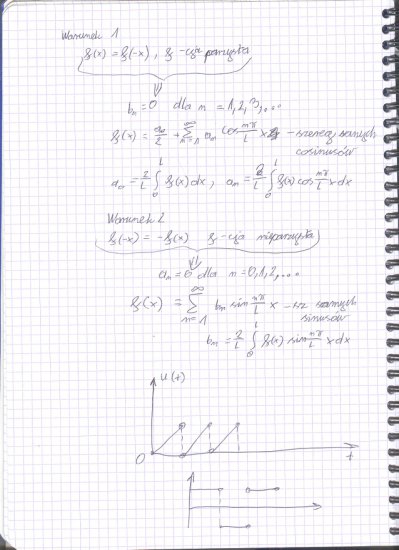 Warunek 1
f(x) = f(-x), f-cja parzysta
⇓
bn = 0 dla n = 1,2,3,...
f(x) = a₀/2 + ∑_{n=1}^{∞} an cos nπ/L x - szereg samych
cosinusów
a₀ = 2/L ∫_0^L f(x)dx, an = 2/L ∫_0^L f(x) cos nπ/L x dx
Warunek 2
f(-x) = -f(x) f-cja nieparzysta
⇓
an = 0 dla n = 0,1,2,...
f(x) = ∑_{n=1}^{∞} bn sin nπ/L x - sz samych
sinusów
bn = 2/L ∫_0^L f(x) sin nπ/L x dx
u(t)
0
t